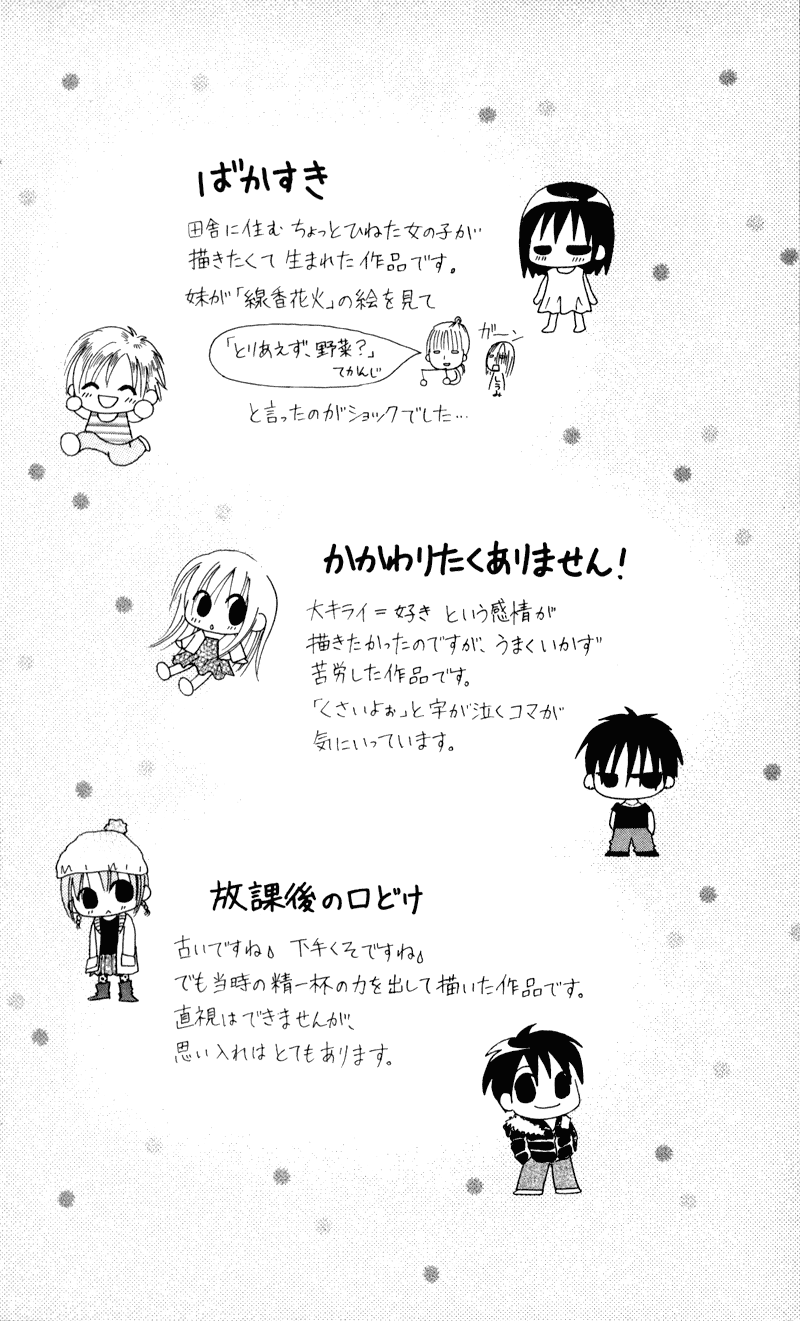 ばかすき
田舎に住む ちょっとひねた女の子が
描きたくて 生まれた作品です。
妹が「線香花火」の絵を見て
「とりあえず、野菜?」
てかんじ
ガーン
と言ったのがショックでした…
かかわりたくありません!
大キライ=好き という感情が
描きたかったのですが、うまくいかず
苦労した作品です。
「くさいよぉ」と宇が泣くコマが
気にいっています。
放課後の口どけ
古いですね 下手くそですね
でも当時の精一杯の力を出して描いた作品です。
直視はできませんが、
思い入れはとてもあります。